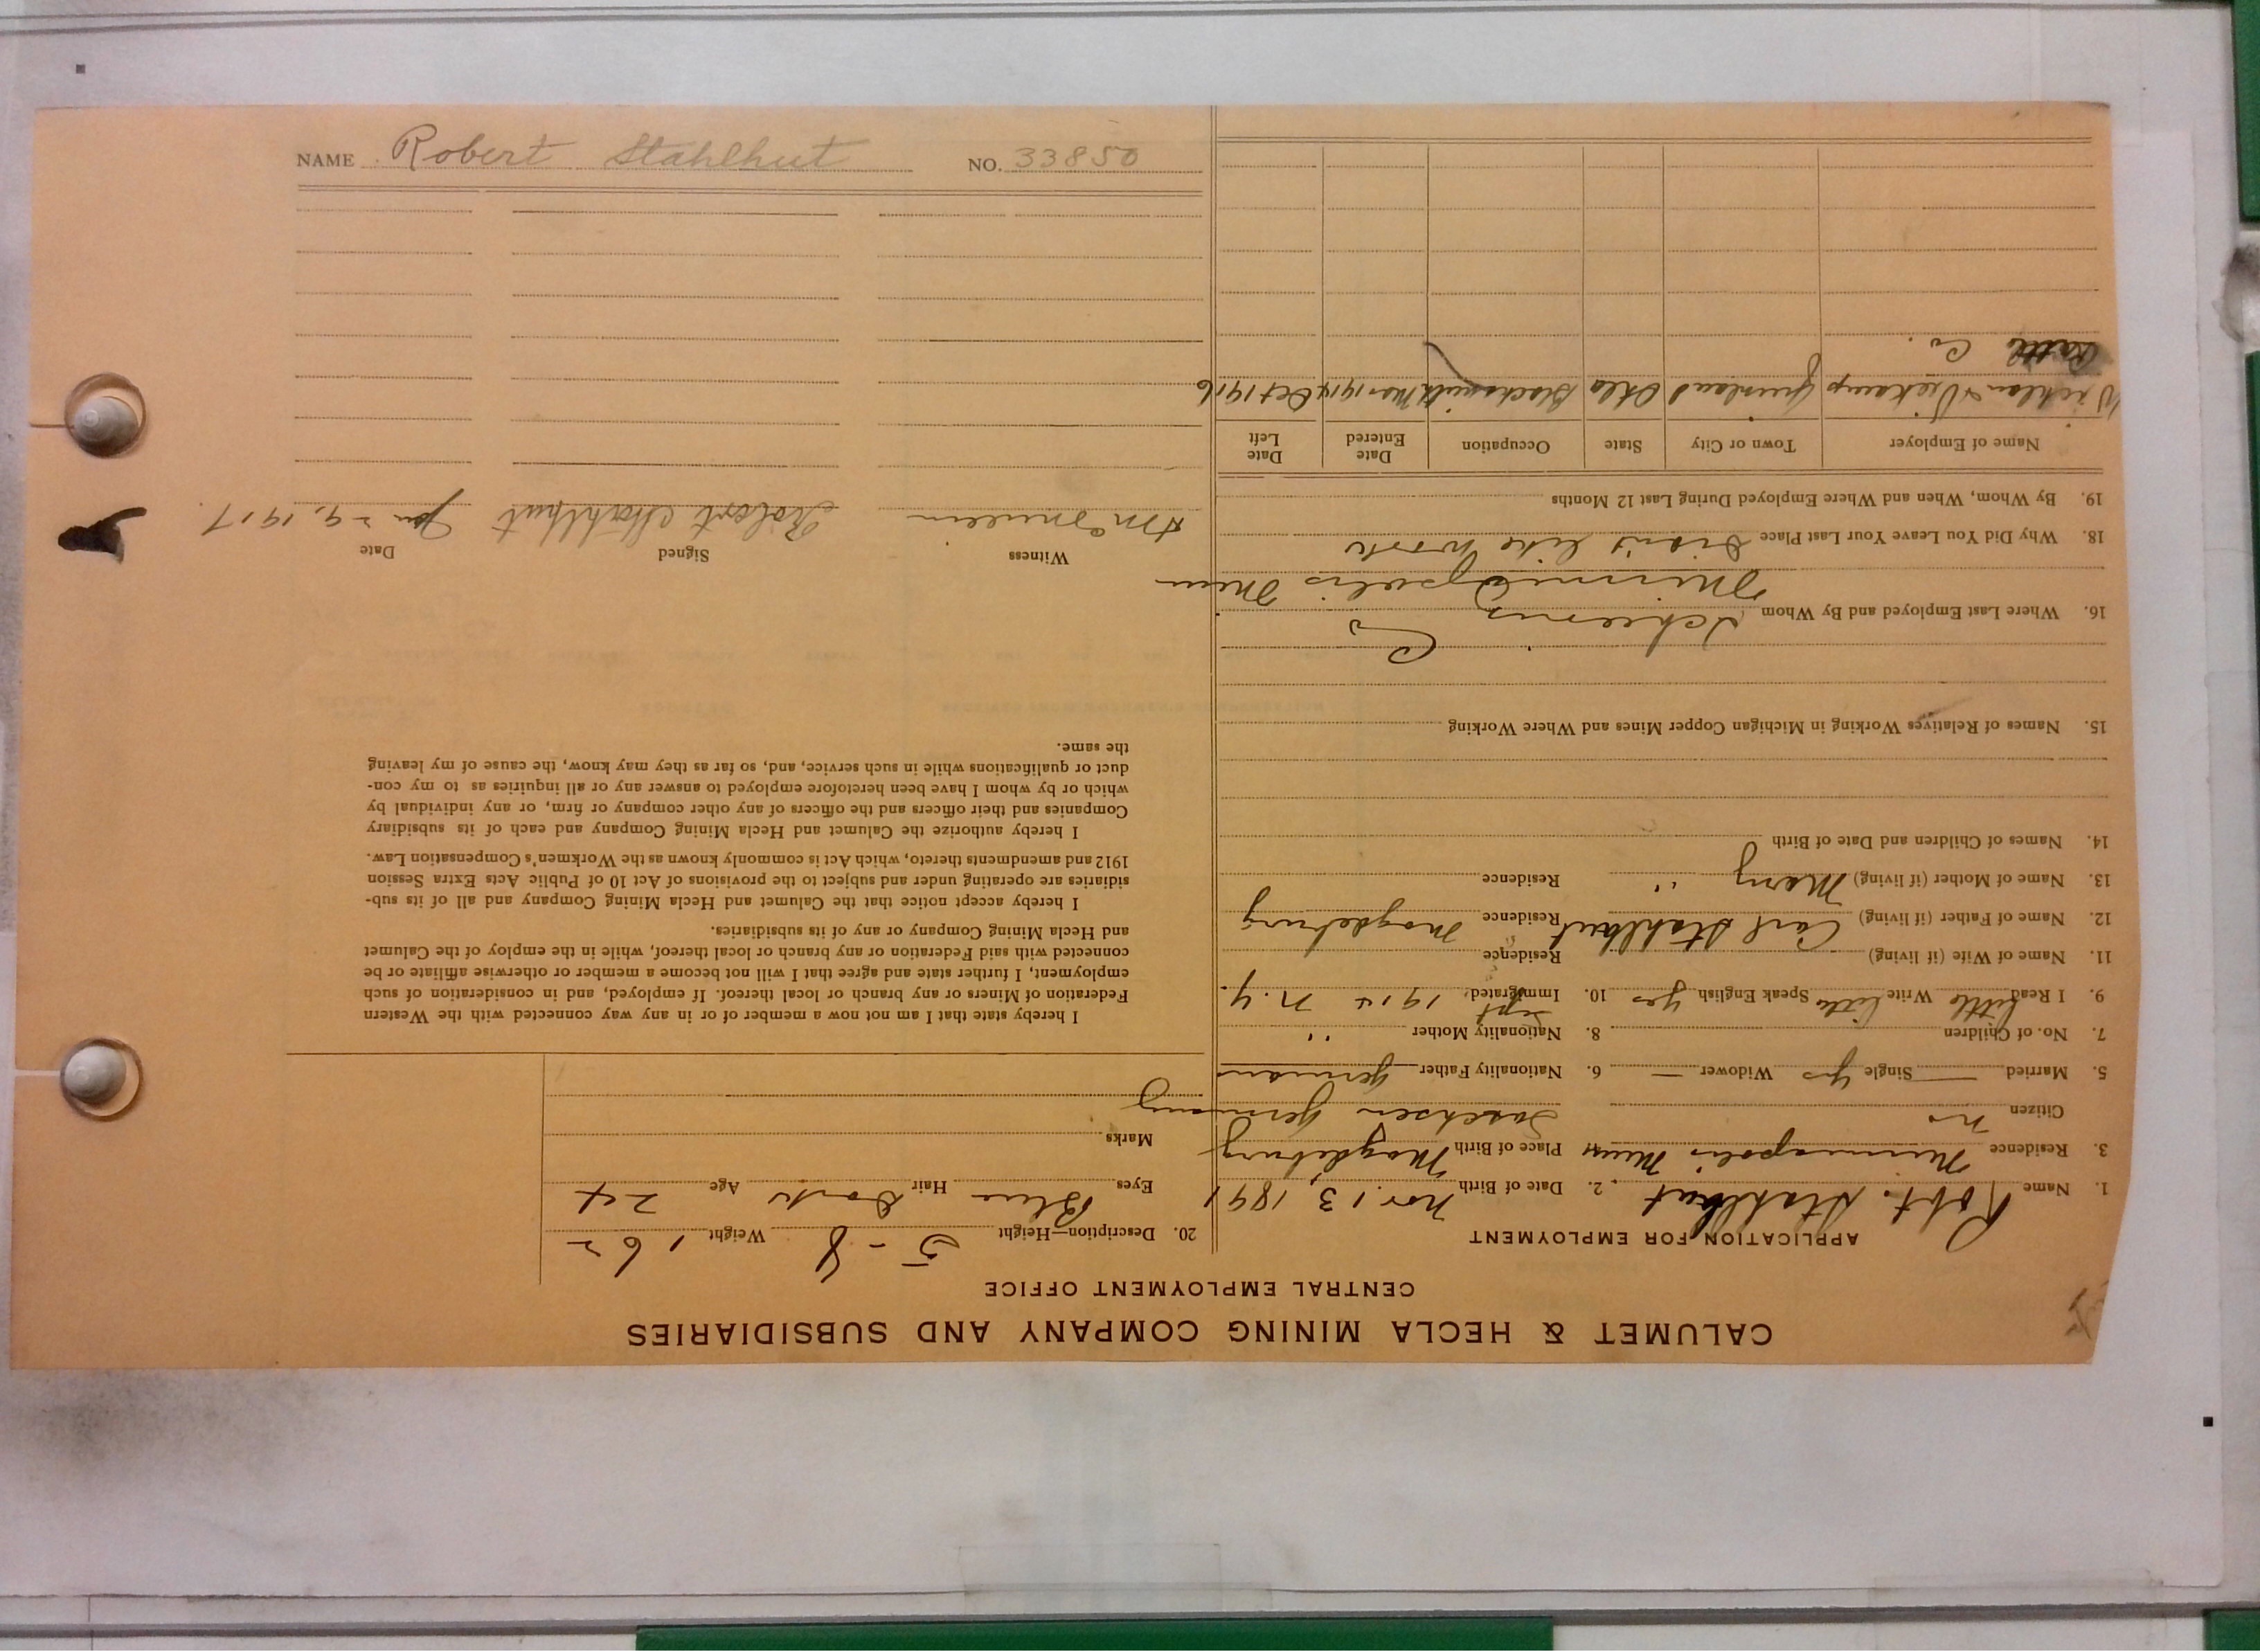 CALUMET & HECLA MINING COMPANY AND SUBSIDIARIES
CENTRAL EMPLOYMENT OFFICE
APPLICATION FOR EMPLOYMENT
1. Name Robt. Stahlhut 2. Date of Birth Nov. 13, 1891
3. Residence Minneapolis Minn 4. Place of Birth Magdeburg
Citizen no Sachsen Germany
5. Married — Single yes Widower — 6. Nationality Father German
7. No. of Children 8. Nationality Mother "
9. I Read little Write little Speak English yes 10. Immigrated Sept 1914 N.Y
11. Name of Wife (if living) Residence
12. Name of Father (if living) Carl Stahlhut Residence Magdeburg
13. Name of Mother (if living) Mary " Residence
14. Names of Children and Date of Birth
15. Names of Relatives Working in Michigan Copper Mines and Where Working
Co
16. Where Last Employed and By Whom
Minneapolis Minn
18. Why Did You Leave Your Last Place Didn't like work
19. By Whom, When and Where Employed During Last 12 Months
Name of Employer Town or City State Occupation Date Entered Date Left
Okla Blacksmith Mar 1914 Oct 1916
Co.
20. Description—Height 5-8 Weight 162
Eyes Blue Hair Dark Age 24
Marks
I hereby state that I am not now a member of or in any way connected with the Western
Federation of Miners or any branch or local thereof. If employed, and in consideration of such
employment, I further state and agree that I will not become a member or otherwise affiliate or be
connected with said Federation or any branch or local thereof, while in the employ of the Calumet
and Hecla Mining Company or any of its subsidiaries.
I hereby accept notice that the Calumet and Hecla Mining Company and all of its sub-
sidiaries are operating under and subject to the provisions of Act 10 of Public Acts Extra Session
1912 and amendments thereto, which Act is commonly known as the Workmen's Compensation Law.
I hereby authorize the Calumet and Hecla Mining Company and each of its subsidiary
Companies and their officers and the officers of any other company or firm, or any individual by
which or by whom I have been heretofore employed to answer any or all inquiries as to my con-
duct or qualifications while in such service, and, so far as they may know, the cause of my leaving
the same.
Witness Signed Date
Robert Stahlhut Jan 29, 1917.
NAME Robert Stahlhut NO. 33850